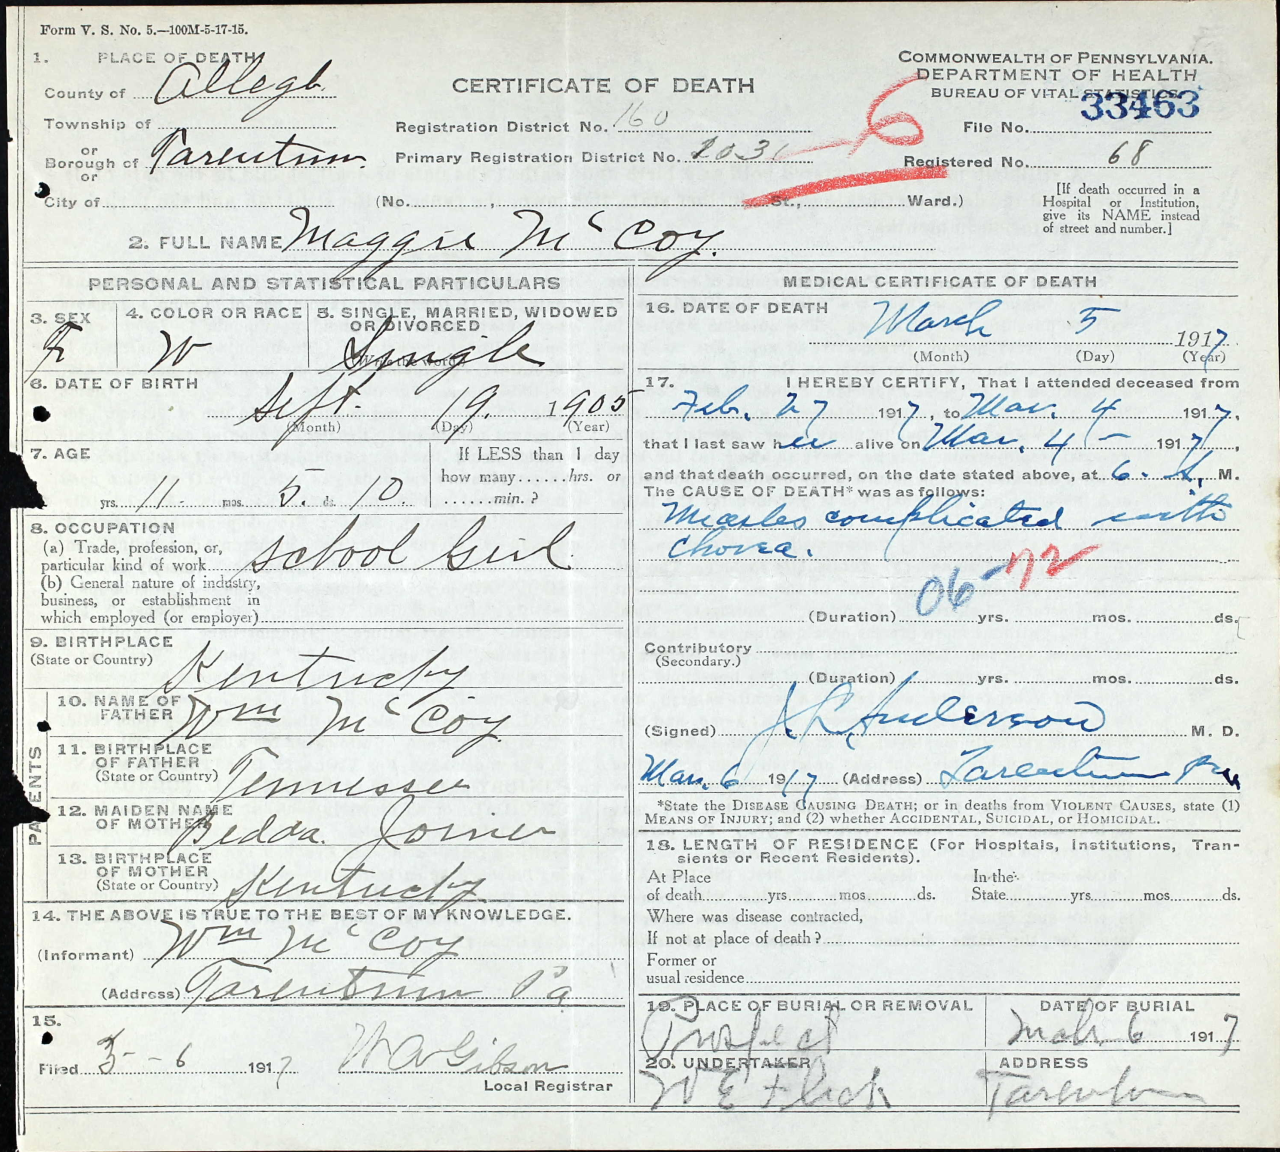 Form V. S. No. 5.—100M-5-17-15.
1. PLACE OF DEATH
County of Allegh.
Township of
or
Borough of Tarentum.
or
City of
CERTIFICATE OF DEATH
Registration District No. 160
Primary Registration District No. 2031
(No. , St., Ward.)
COMMONWEALTH OF PENNSYLVANIA.
DEPARTMENT OF HEALTH
BUREAU OF VITAL STATISTICS.
File No. 33463
Registered No. 68
6
[If death occurred in a
Hospital or Institution,
give its NAME instead
of street and number.]
2. FULL NAME Maggie McCoy.
PERSONAL AND STATISTICAL PARTICULARS
3. SEX
F
4. COLOR OR RACE
W
5. SINGLE, MARRIED, WIDOWED
OR DIVORCED
(Write the word)
Single
6. DATE OF BIRTH
Sept. 19. 1905
(Month) (Day) (Year)
7. AGE
11 yrs. 5 mos. 10 ds.
If LESS than 1 day
how many......hrs. or
.......min.?
8. OCCUPATION
(a) Trade, profession, or,
particular kind of work School Girl
(b) General nature of industry,
business, or establishment in
which employed (or employer)
9. BIRTHPLACE
(State or Country)
Kentucky
PARENTS
10. NAME OF
FATHER
Wm McCoy
11. BIRTHPLACE
OF FATHER
(State or Country)
Tennessee
12. MAIDEN NAME
OF MOTHER
Bedda. Joiner
13. BIRTHPLACE
OF MOTHER
(State or Country)
Kentucky
14. THE ABOVE IS TRUE TO THE BEST OF MY KNOWLEDGE.
(Informant) Wm McCoy
(Address) Tarentum Pa
15.
Filed 3-6 1917 W A Gibson
Local Registrar
MEDICAL CERTIFICATE OF DEATH
16. DATE OF DEATH
March 5 1917
(Month) (Day) (Year)
17. I HEREBY CERTIFY, That I attended deceased from
Feb. 27 1917, to Mar. 4 1917,
that I last saw her alive on Mar. 4 - 1917,
and that death occurred, on the date stated above, at 6. A. M.
The CAUSE OF DEATH* was as follows:
Measles complicated with
chorea.
06-72
(Duration) yrs. mos. ds.
Contributory
(Secondary.)
(Duration) yrs. mos. ds.
(Signed) J L Anderson M. D.
Mar. 6 1917 (Address) Tarentum Pa
*State the DISEASE CAUSING DEATH; or in deaths from VIOLENT CAUSES, state (1)
MEANS OF INJURY; and (2) whether ACCIDENTAL, SUICIDAL, or HOMICIDAL.
18. LENGTH OF RESIDENCE (For Hospitals, Institutions, Tran-
sients or Recent Residents).
At Place
of death yrs. mos. ds.
In the
State yrs. mos. ds.
Where was disease contracted,
If not at place of death?
Former or
usual residence
19. PLACE OF BURIAL OR REMOVAL
Prospect
DATE OF BURIAL
Mch. 6 1917
20. UNDERTAKER
W E Flick
ADDRESS
Tarentum